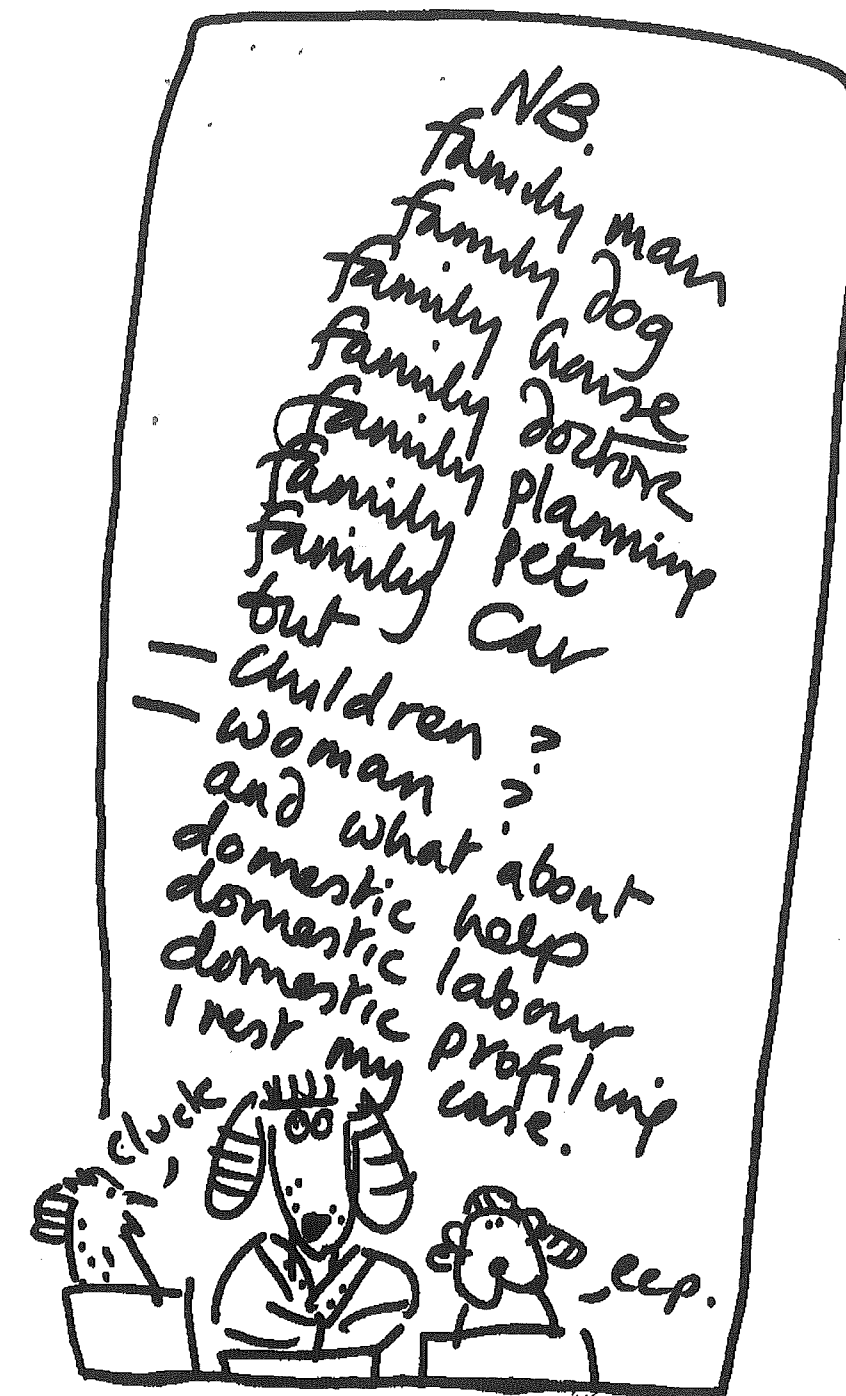 NB.
family man
family dog
family house
family doctor
family planning
family pet
family car
but
children ?
woman ?
and what about
domestic help
domestic labour
domestic profiling
I rest my case.
cluck
eep.